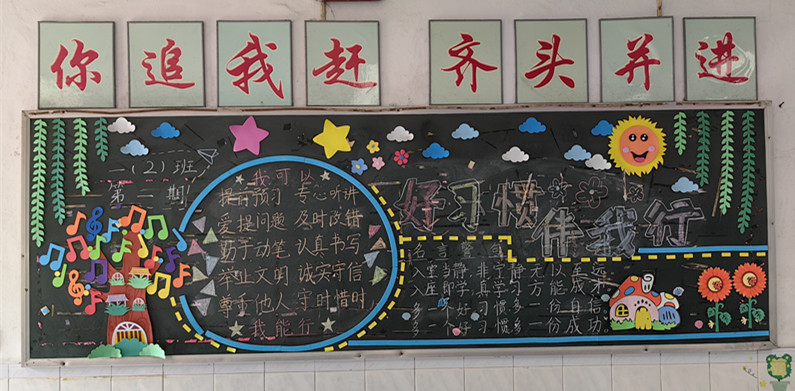 你追我赶 齐头并进
一(2)班
第一期
我可以
提前预习 专心听讲
爱提问题 及时改错
勤于动笔 认真书写
举止文明 诚实守信
尊重他人 守时惜时
我能行
好习惯
伴我行
入室当静 非宁静无以至远
入座即学 真学习方能成才
多一个好习惯 多一份自信
多一个好习惯 多一份成功